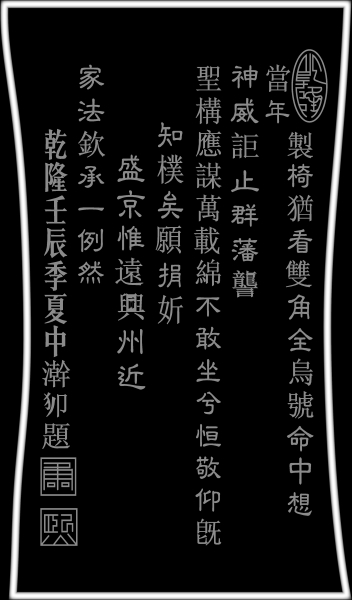 製椅猶看雙角全烏號命中想
當年
神威詎止群藩讋
聖構應謀萬載綿不敢坐兮恒敬仰既
知樸矣願捐妍
盛京惟遠興州近
家法欽承一例然
乾隆壬辰季夏中澣御題